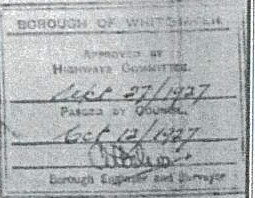 BOROUGH OF WHITEHAVEN.
APPROVED BY
HIGHWAYS COMMITTEE.
Sept 27/1927
PASSED BY COUNCIL.
Oct 12/1927
Borough Engineer and Surveyor